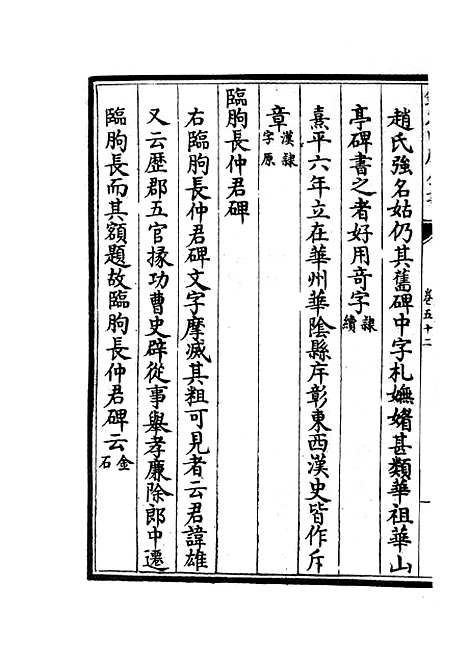 卷五十二
趙氏強名姑仍其舊碑中字札嫵媚甚類華祖華山
亭碑書之者好用竒字隸續
熹平六年立在華州華陰縣庠彰東西漢史皆作斥
章漢隸字原
臨朐長仲君碑
右臨朐長仲君碑文字摩滅其粗可見者云君諱雄
又云歴郡五官掾功曹史辟從事舉孝廉除郎中遷
臨朐長而其額題故臨朐長仲君碑云金石